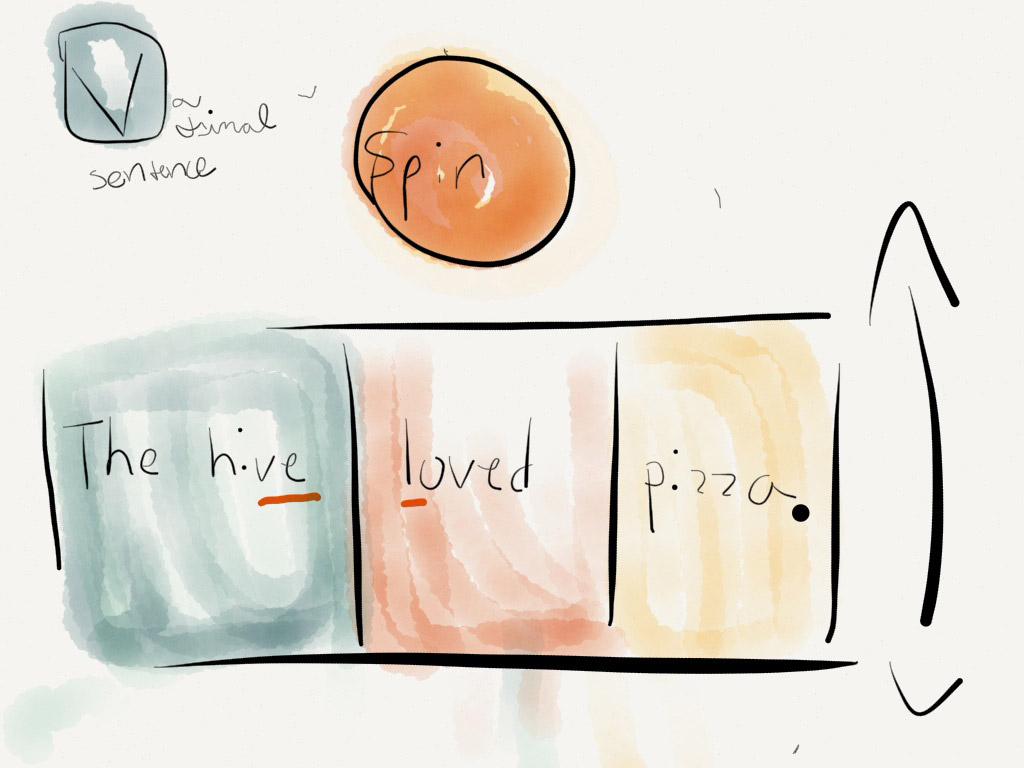 V
a final
sentence
Spin
The hive loved pizza.